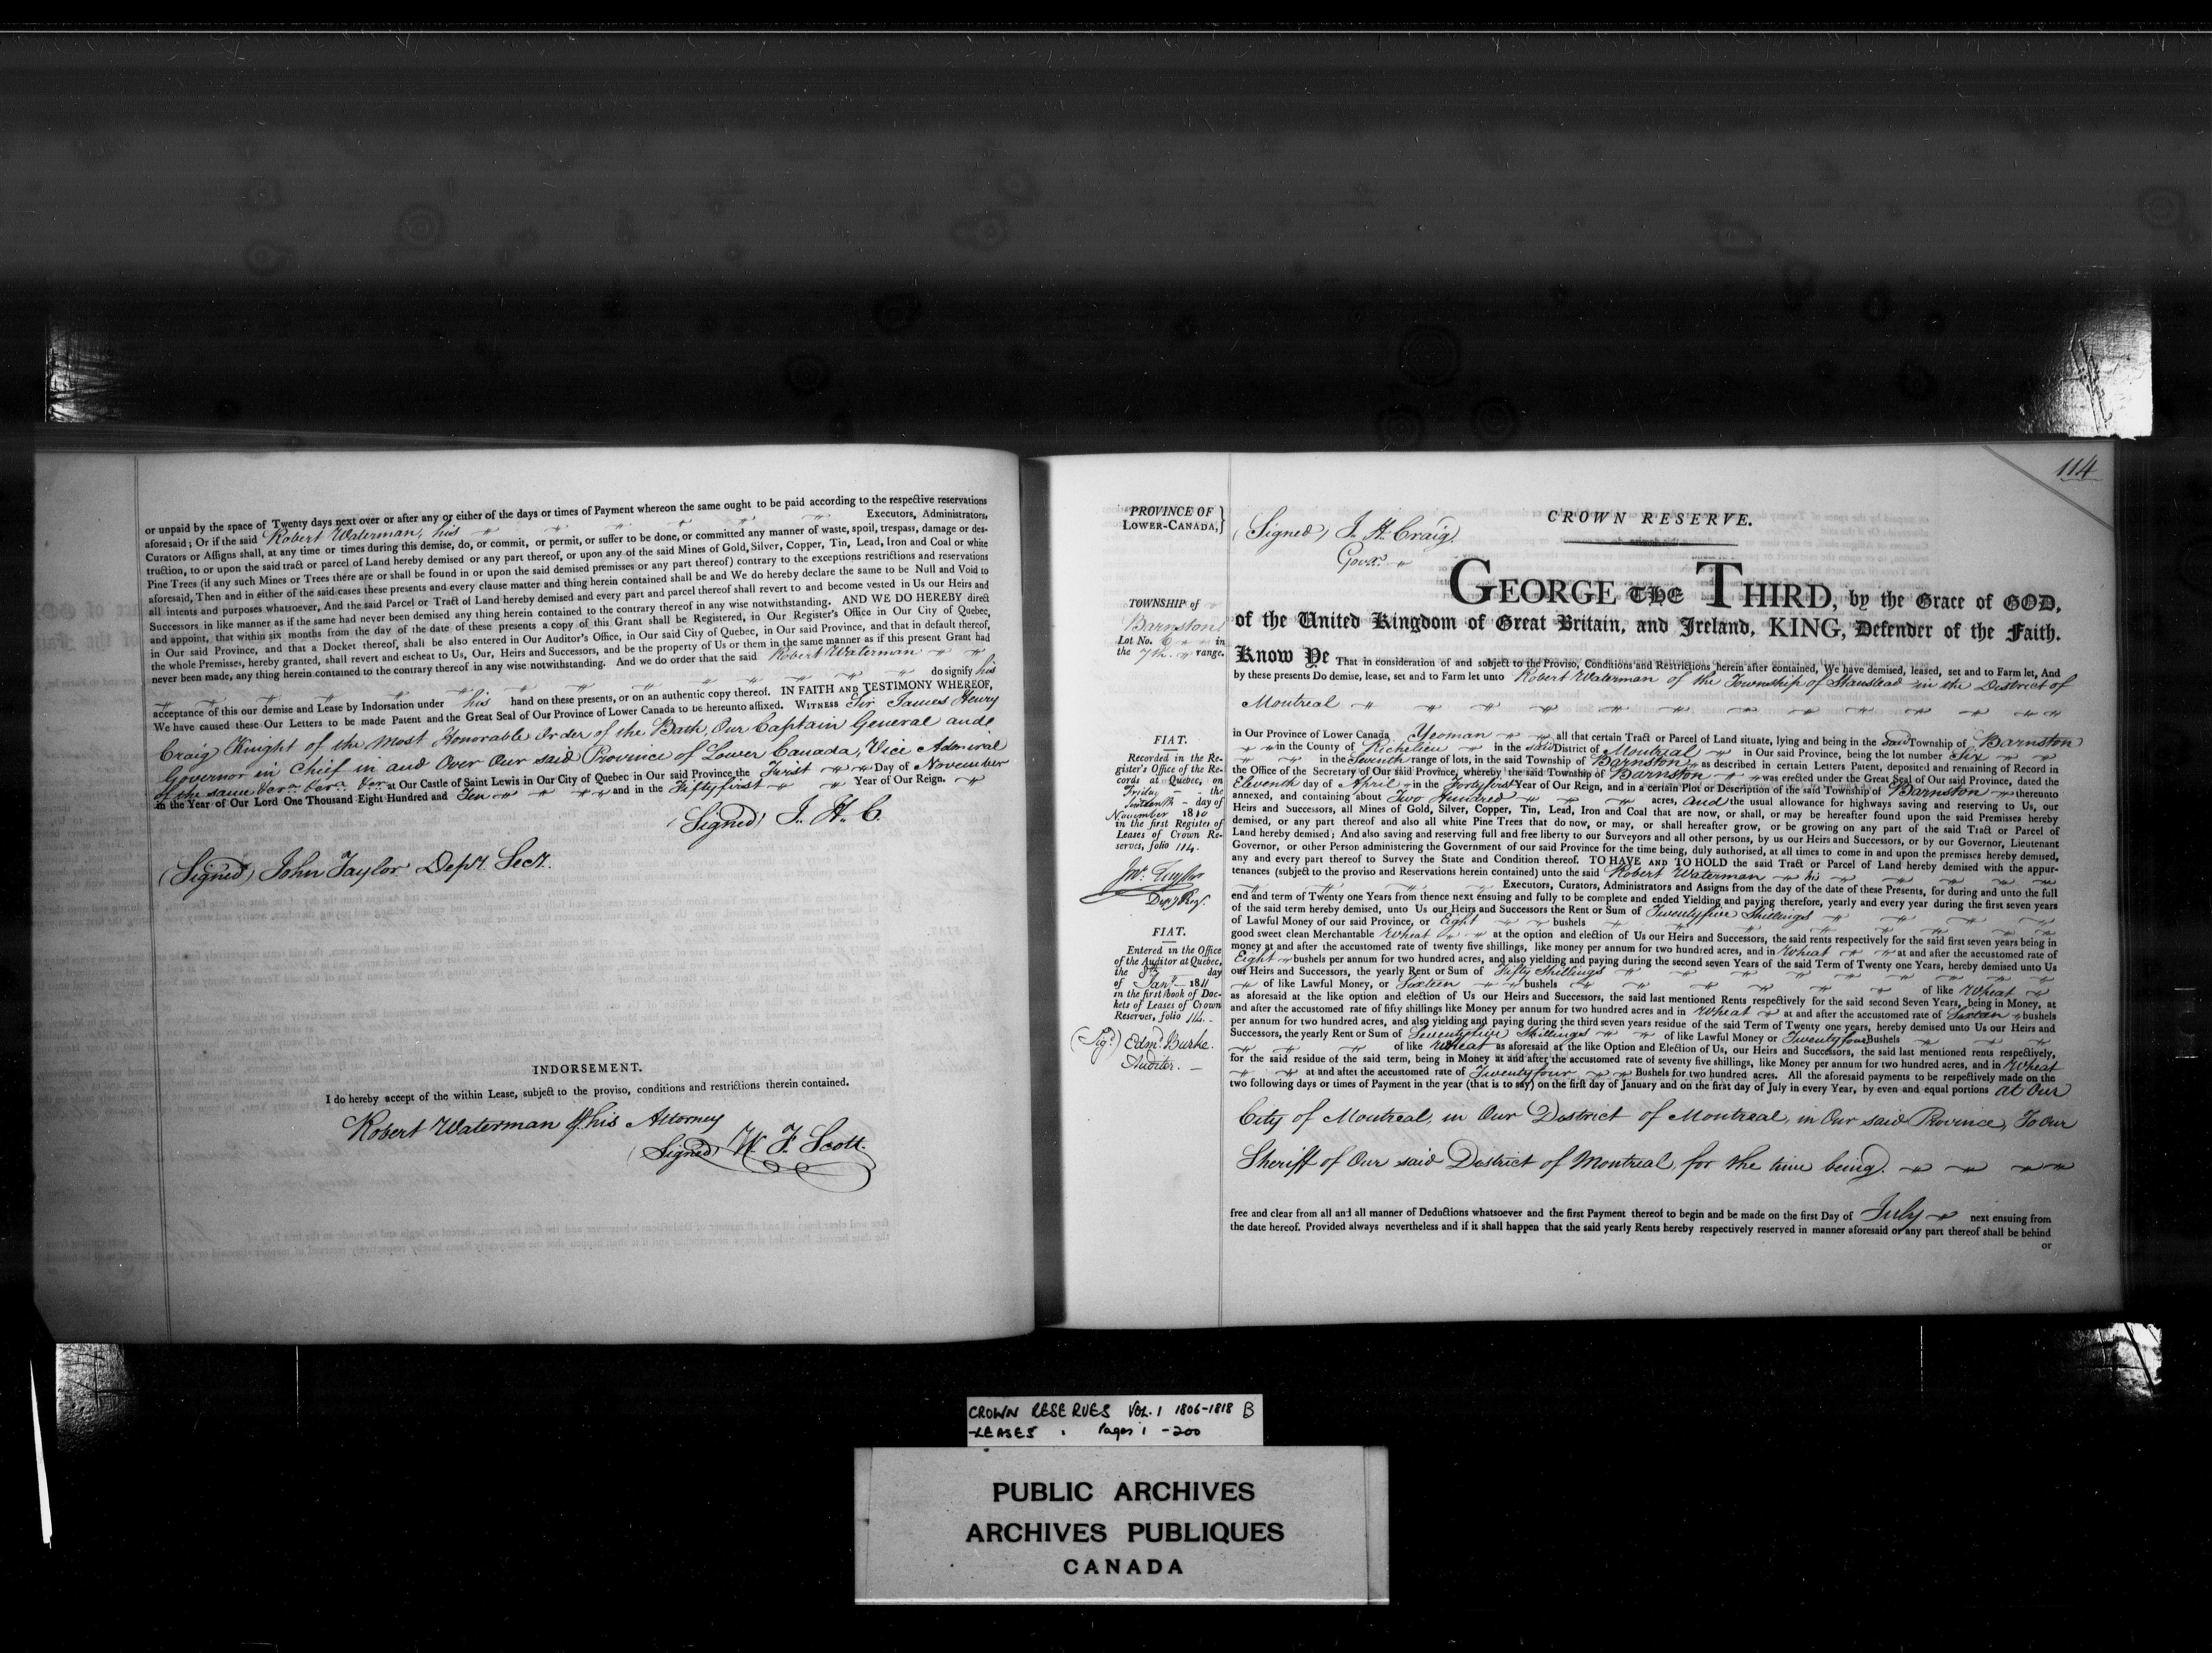 or unpaid by the space of Twenty days next over or after any or either of the days or times of Payment whereon the same ought to be paid according to the respective reservations
aforesaid; Or if the said Robert Waterman, his Executors, Administrators,
Curators or Assigns shall, at any time or times during this demise, do, or commit, or permit, or suffer to be done, or committed any manner of waste, spoil, trespass, damage or des-
truction, to or upon the said tract or parcel of Land hereby demised or any part thereof, or upon any of the said Mines of Gold, Silver, Copper, Tin, Lead, Iron and Coal or white
Pine Trees (if any such Mines or Trees there are or shall be found in or upon the said demised premises or any part thereof) contrary to the exceptions restrictions and reservations
aforesaid, Then and in either of the said cases these presents and every clause matter and thing herein contained shall be and We do hereby declare the same to be Null and Void to
all intents and purposes whatsoever, And the said Parcel or Tract of Land hereby demised and every part and parcel thereof shall revert to and become vested in Us our Heirs and
Successors in like manner as if the same had never been demised any thing herein contained to the contrary thereof in any wise notwithstanding. AND WE DO HEREBY direct
and appoint, that within six months from the day of the date of these presents a copy of this Grant shall be Registered, in Our Register's Office in Our City of Quebec,
in Our said Province, and that a Docket thereof, shall be also entered in Our Auditor's Office, in Our said City of Quebec, in Our said Province, and that in default thereof,
the whole Premisses, hereby granted, shall revert and escheat to Us, Our, Heirs and Successors, and be the property of Us or them in the same manner as if this present Grant had
never been made, any thing herein contained to the contrary thereof in any wise notwithstanding. And we do order that the said Robert Waterman
do signify his
acceptance of this our demise and Lease by Indorsation under his hand on these presents, or on an authentic copy thereof. IN FAITH AND TESTIMONY WHEREOF,
We have caused these Our Letters to be made Patent and the Great Seal of Our Province of Lower Canada to be hereunto affixed. WITNESS Sir James Henry
Craig Knight of the Most Honorable Order of the Bath, Our Captain General and
Governor in Chief in and Over Our said Province of Lower Canada, Vice Admiral
of the same &ca. &ca. &ca. at Our Castle of Saint Lewis in Our City of Quebec in Our said Province the First Day of November
in the Year of Our Lord One Thousand Eight Hundred and Ten and in the Fiftyfirst Year of Our Reign.
(Signed) J. H. C.
(Signed) John Taylor Depy. Secy.
INDORSEMENT.
I do hereby accept of the within Lease, subject to the proviso, conditions and restrictions therein contained.
Robert Waterman his Attorney
(Signed) W. F. Scott.
114
PROVINCE OF
LOWER-CANADA,
CROWN RESERVE.
(Signed) J. H. Craig.
Govr.
GEORGE THE THIRD, by the Grace of GOD,
of the United Kingdom of Great Britain, and Ireland, KING, Defender of the Faith.
TOWNSHIP of
Barnston
Lot No. 6 in
the 7th. range.
Know Ye That in consideration of and subject to the Proviso, Conditions and Restrictions herein after contained, We have demised, leased, set and to Farm let, And
by these presents Do demise, lease, set and to Farm let unto Robert Waterman of the Township of Stanstead in the District of
Montreal
in Our Province of Lower Canada Yeoman all that certain Tract or Parcel of Land situate, lying and being in the said Township of Barnston
in the County of Richelieu in the said District of Montreal in Our said Province, being the lot number Six
in the Seventh range of lots, in the said Township of Barnston as described in certain Letters Patent, deposited and remaining of Record in
the Office of the Secretary of Our said Province, whereby the said Township of Barnston was erected under the Great Seal of Our said Province, dated the
Eleventh day of April in the Fortyfirst Year of Our Reign, and in a certain Plot or Description of the said Township of Barnston thereunto
annexed, and containing about Two Hundred acres, and the usual allowance for highways saving and reserving to Us, our
Heirs and Successors, all Mines of Gold, Silver, Copper, Tin, Lead, Iron and Coal that are now, or shall, or may be hereafter found upon the said Premisses hereby
demised, or any part thereof and also all white Pine Trees that do now, or may, or shall hereafter grow, or be growing on any part of the said Tract or Parcel of
Land hereby demised; And also saving and reserving full and free liberty to our Surveyors and all other persons, by us our Heirs and Successors, or by our Governor, Lieutenant
Governor, or other Person administering the Government of our said Province for the time being, duly authorised, at all times to come in and upon the premises hereby demised,
any and every part thereof to Survey the State and Condition thereof. TO HAVE AND TO HOLD the said Tract or Parcel of Land hereby demised with the appur-
tenances (subject to the proviso and Reservations herein contained) unto the said Robert Waterman his
Executors, Curators, Administrators and Assigns from the day of the date of these Presents, for during and unto the full
end and term of Twenty one Years from thence next ensuing and fully to be complete and ended Yielding and paying therefore, yearly and every year during the first seven years
of the said term hereby demised, unto Us our Heirs and Successors the Rent or Sum of Twentyfive Shillings
of Lawful Money of our said Province, or Eight bushels
good sweet clean Merchantable Wheat at the option and election of Us our Heirs and Successors, the said rents respectively for the said first seven years being in
money at and after the accustomed rate of twenty five shillings, like money per annum for two hundred acres, and in Wheat at and after the accustomed rate of
Eight bushels per annum for two hundred acres, and also yielding and paying during the second seven Years of the said Term of Twenty one Years, hereby demised unto Us
our Heirs and Successors, the yearly Rent or Sum of Fifty Shillings
of like Lawful Money, or Sixteen bushels of like Wheat
as aforesaid at the like option and election of Us our Heirs and Successors, the said last mentioned Rents respectively for the said second Seven Years, being in Money, at
and after the accustomed rate of fifty shillings like Money per annum for two hundred acres and in Wheat at and after the accustomed rate of Sixteen bushels
per annum for two hundred acres, and also yielding and paying during the third seven years residue of the said Term of Twenty one years, hereby demised unto Us our Heirs and
Successors, the yearly Rent or Sum of Seventyfive Shillings of like Lawful Money or Twentyfour Bushels
of like Wheat as aforesaid at the like Option and Election of Us, our Heirs and Successors, the said last mentioned rents respectively,
for the said residue of the said term, being in Money at and after the accustomed rate of seventy five shillings, like Money per annum for two hundred acres, and in Wheat
at and after the accustomed rate of Twentyfour Bushels for two hundred acres. All the aforesaid payments to be respectively made on the
two following days or times of Payment in the year (that is to say) on the first day of January and on the first day of July in every Year, by even and equal portions at Our
City of Montreal, in Our District of Montreal, in Our said Province, To Our
Sheriff of Our said District of Montreal, for the time being.
free and clear from all and all manner of Deductions whatsoever and the first Payment thereof to begin and be made on the first Day of July next ensuing from
the date hereof. Provided always nevertheless and if it shall happen that the said yearly Rents hereby respectively reserved in manner aforesaid or any part thereof shall be behind
or
FIAT.
Recorded in the Re-
gister's Office of the Re-
cords at Quebec, on
Friday the
Sixteenth day of
November 1810
in the first Register of
Leases of Crown Re-
serves, folio 114.
Jno. Taylor
Depy. Regr.
FIAT.
Entered in the Office
of the Auditor at Quebec,
the day
of Jany. 1811
in the first book of Doc-
kets of Leases of Crown
Reserves, folio 114.
(Sigd.) Edmd. Burke.
Auditor.
CROWN RESERVES VOL. 1 1806-1818 B
-LEASES. Pages 1 -200
PUBLIC ARCHIVES
ARCHIVES PUBLIQUES
CANADA